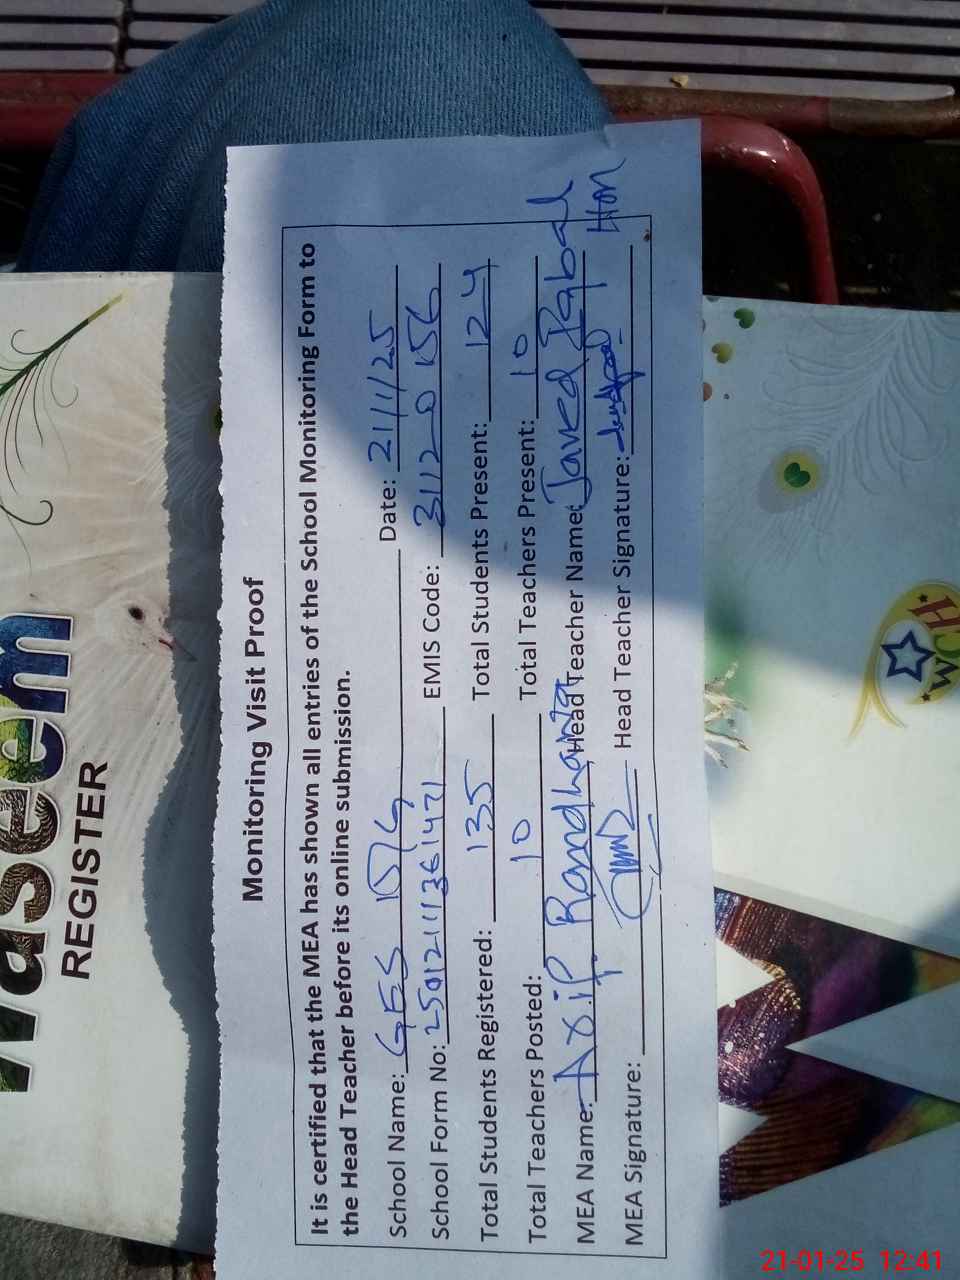 Waseem
REGISTER
Monitoring Visit Proof
It is certified that the MEA has shown all entries of the School Monitoring Form to
the Head Teacher before its online submission.
School Name: GES 15/G Date: 21/1/25
School Form No: 25012111361471 EMIS Code: 31120156
Total Students Registered: 135 Total Students Present: 124
Total Teachers Posted: 10 Total Teachers Present: 10
MEA Name: Asif Randhawa Head Teacher Name: Javed Iqbal
MEA Signature: Head Teacher Signature:
HM
21-01-25 12:41